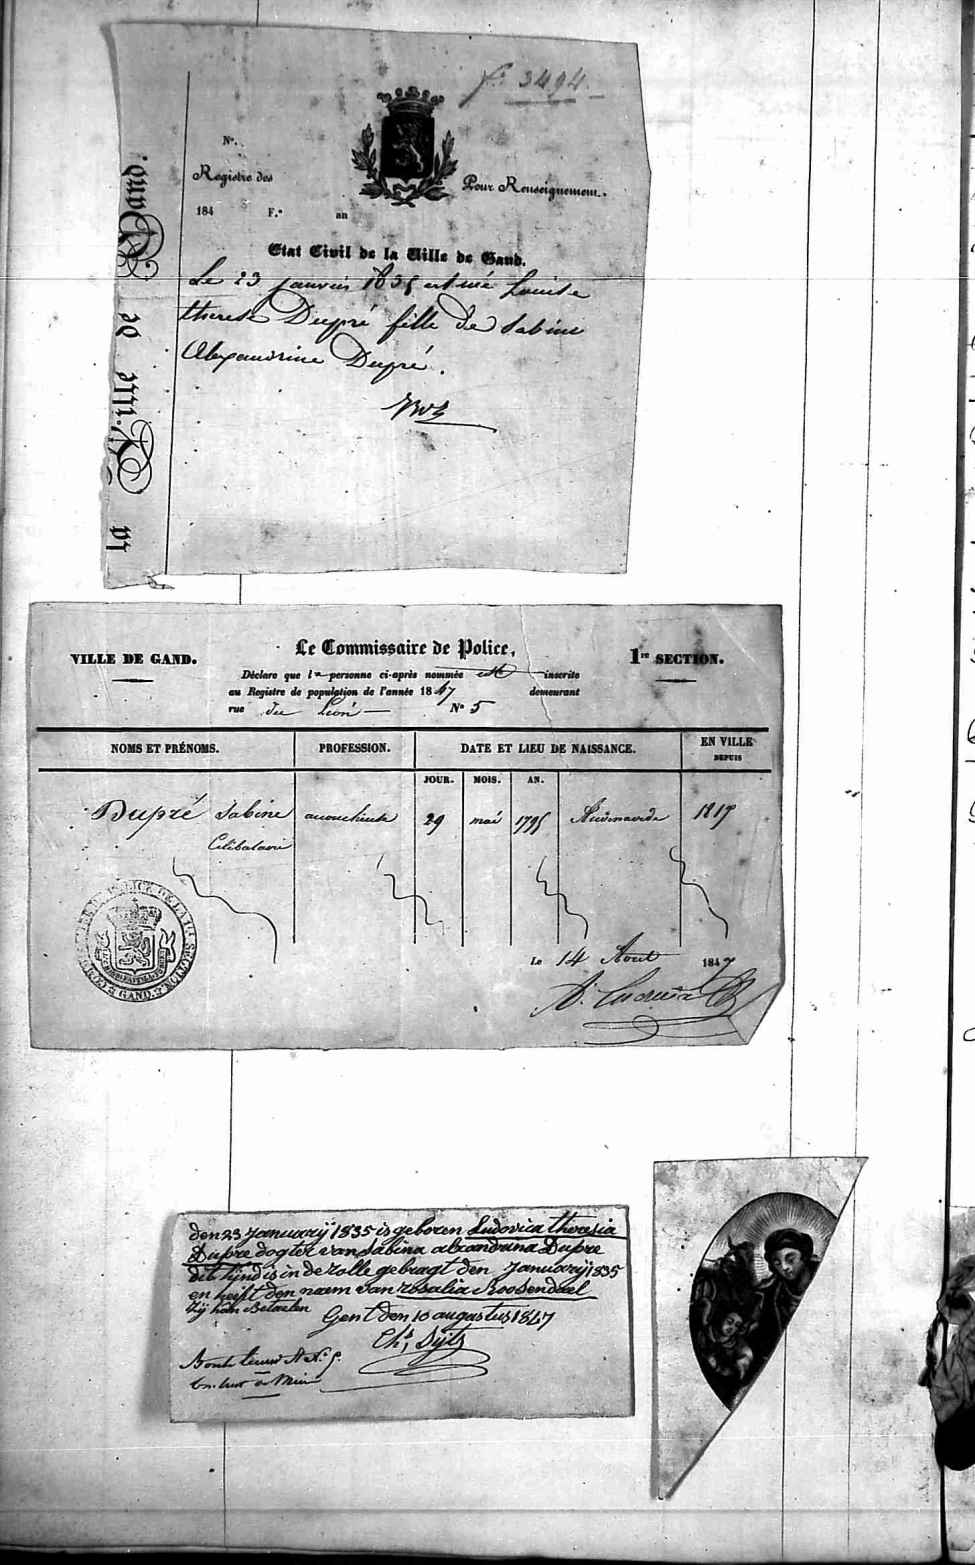 f° 3494.
N°.
Registre des
Pour Renseignement.
184 F.° au
Etat Civil de la Ville de Gand.
Le 23 janvier 1835 est née Louise
therese Dupré fille de Sabine
Alexandrine Dupré.
la Ville de Gand.
VILLE DE GAND.
Le Commissaire de Police,
1re SECTION.
Déclare que la personne ci-après nommée est inscrite
au Registre de population de l'année 1847 demeurant
rue du N° 5
NOMS ET PRÉNOMS. PROFESSION. DATE ET LIEU DE NAISSANCE. EN VILLE DEPUIS
JOUR. MOIS. AN.
Dupré Sabine 29 mai 1795 1817
Célibataire
Le 14 Aout 1847
den 23 Januarij 1835 is geboren Ludovica theresia
Dupre dogter van Sabina alexandrina Dupre
dit kynd is in de rolle gebragt den Januarij 1835
en heist den naem van rosalia Roosendael
zij kan Betaelen
Gent den 10 augustus 1847